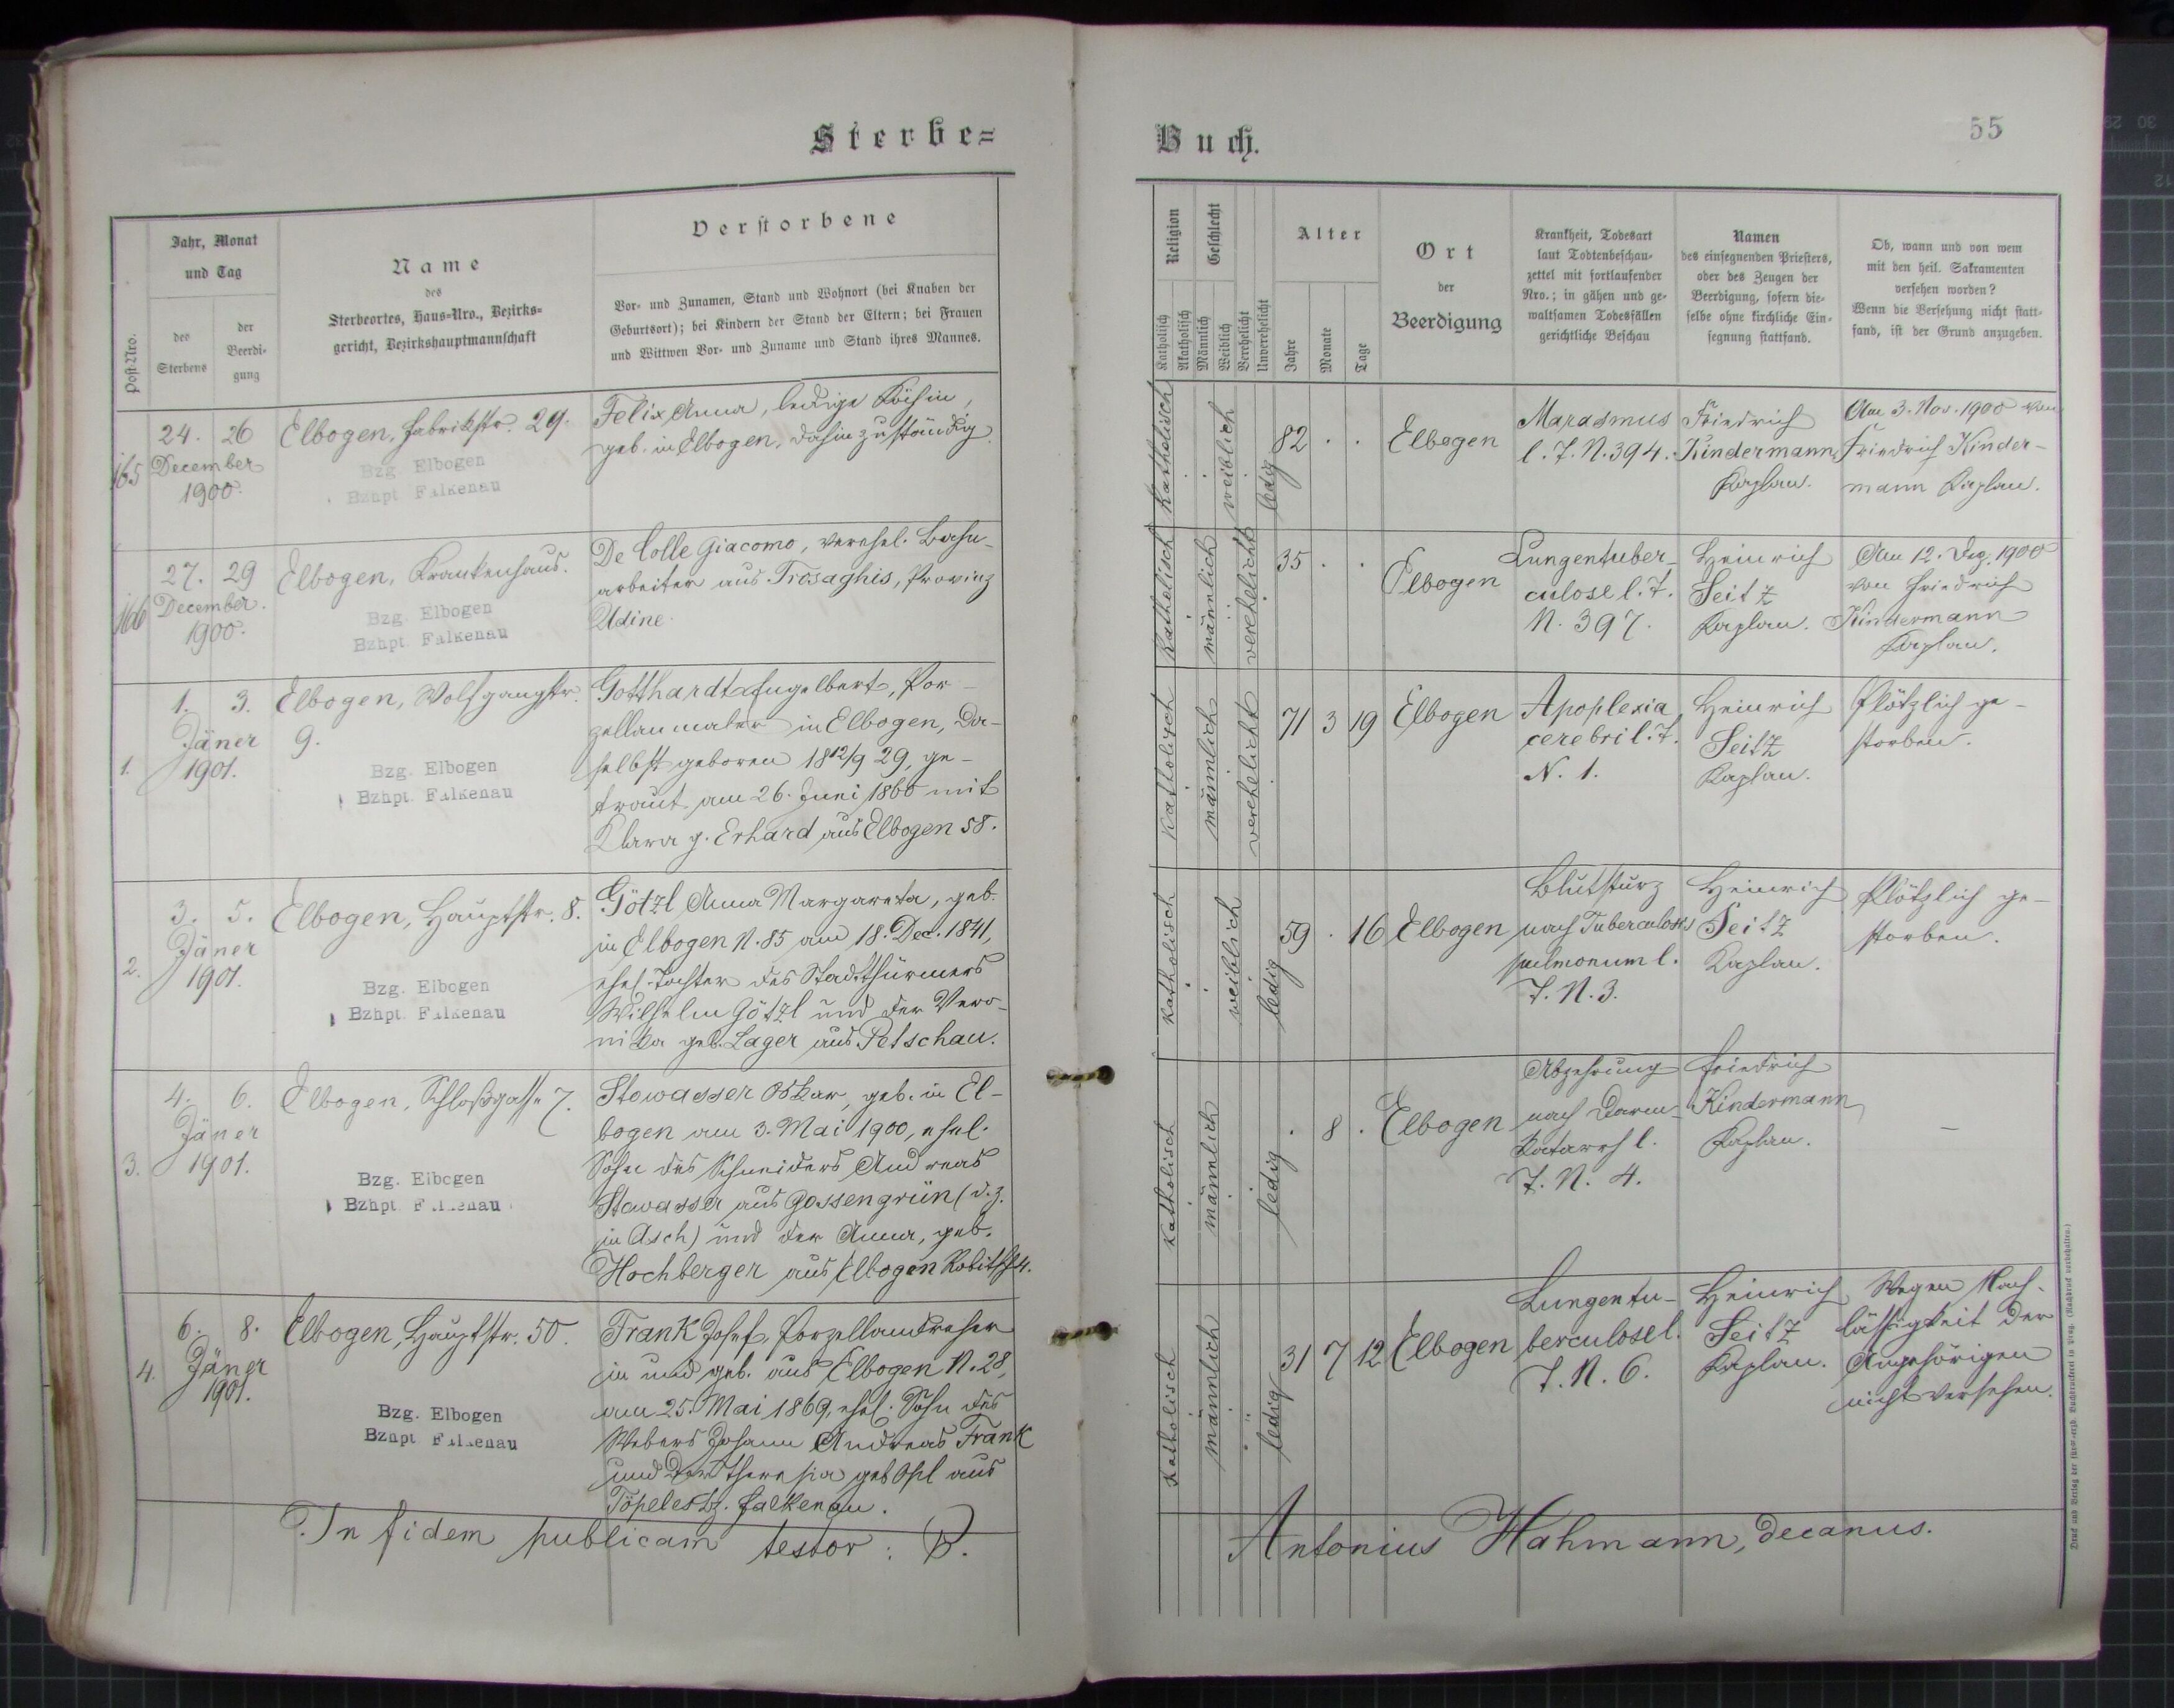 Sterbe=
Buch.
55
Post-Nro.
Jahr, Monat
und Tag
des
Sterbens
der
Beerdi-
gung
Name
des
Sterbeortes, Haus-Nro., Bezirks-
gericht, Bezirkshauptmannschaft
Verstorbene
Vor- und Zunamen, Stand und Wohnort (bei Knaben der
Geburtsort); bei Kindern der Stand der Eltern; bei Frauen
und Wittwen Vor- und Zuname und Stand ihres Mannes.
Religion
Katholisch
Akatholisch
Geschlecht
Männlich
Weiblich
Verehelicht
Unverehelicht
Alter
Jahre
Monate
Tage
Ort
der
Beerdigung
Krankheit, Todesart
laut Todtenbeschau-
zettel mit fortlaufender
Nro.; in gähen und ge-
waltsamen Todesfällen
gerichtliche Beschau
Namen
des einsegnenden Priesters,
oder des Zeugen der
Beerdigung, sofern die-
selbe ohne kirchliche Ein-
segnung stattfand.
Ob, wann und von wem
mit den heil. Sakramenten
versehen worden?
Wenn die Versehung nicht statt-
fand, ist der Grund anzugeben.
165
24. 26
December
1900.
Elbogen, Fabrikstr. 29.
Bzg. Elbogen
Bzhpt Falkenau
Felix Anna, ledige Köchin,
geb. in Elbogen, dahin zuständig.
katholisch
weiblich
ledig
82 . .
Elbogen
Marasmus
l. T. N. 394.
Friedrich
Kindermann
Kaplan.
Am 3. Nov. 1900 von
Friedrich Kinder-
mann Kaplan.
166
27. 29
December.
1900.
Elbogen, Krankenhaus.
Bzg. Elbogen
Bzhpt. Falkenau
De Colle Giacomo, verehel. Bahn-
arbeiter aus Trasaghis, Provinz
Udine.
katholisch
männlich
verehelicht
35 . .
Elbogen
Lungentuber-
culose l. T.
N. 397.
Heinrich
Seitz
Kaplan.
Am 12. Dez. 1900
von Friedrich
Kindermann
Kaplan.
1.
1. 3.
Jäner
1901.
Elbogen, Wolfgangstr.
9.
Bzg. Elbogen
Bzhpt. Falkenau
Gotthardt Engelbert, Por-
zellanmaler in Elbogen, da-
selbst geboren 18 12/9 29, ge-
traut am 26. Juni 1860 mit
Klara g. Erhard aus Elbogen 58.
katholisch
männlich
verehelicht
71 3 19
Elbogen
Apoplexia
cerebri l. T.
N. 1.
Heinrich
Seitz
Kaplan.
Plötzlich ge-
storben.
2.
3. 5.
Jäner
1901.
Elbogen, Hauptstr. 8.
Bzg. Elbogen
Bzhpt. Falkenau
Götzl Anna Margareta, geb.
in Elbogen N. 85 am 18. Dec. 1841,
ehel. Tochter des Stadtthürmers
Wilhelm Götzl und der Vero-
nika geb. Lager aus Petschau.
katholisch
weiblich
ledig
59 . 16
Elbogen
Blutsturz
nach Tuberculosis
pulmonum l.
T. N. 3.
Heinrich
Seitz
Kaplan.
Plötzlich ge-
storben.
3.
4. 6.
Jäner
1901.
Elbogen, Schloßgasse 7.
Bzg. Elbogen
Bzhpt Falkenau
Stowasser Oskar, geb. in El-
bogen am 3. Mai 1900, ehel.
Sohn des Schneiders Andreas
Stowasser aus Gossengrün (d. z.
in Asch) und der Anna, geb.
Hochberger aus Elbogen 4.
katholisch
männlich
ledig
. 8 .
Elbogen
Abzehrung
nach Darm-
katarrh l.
T. N. 4.
Friedrich
Kindermann
Kaplan.
–
4.
6. 8.
Jäner
1901.
Elbogen, Hauptstr. 50.
Bzg. Elbogen
Bzhpt Falkenau
Frank Josef, Porzellandreher
in und geb. aus Elbogen N. 28,
am 25. Mai 1869, ehel. Sohn des
Webers Johann Andreas Frank
und der Theresia geb. aus
Töpeles Bz. Falkenau.
katholisch
männlich
ledig
31 7 12
Elbogen
Lungentu-
berculose l.
T. N. 6.
Heinrich
Seitz
Kaplan.
Wegen Nach-
lässigkeit der
Angehörigen
nicht versehen.
In fidem publicam testor: P.
Antonius Hahmann, decanus.
Druck und Verlag der fürst-erzb. Buchdruckerei in Prag. (Nachdruck vorbehalten.)